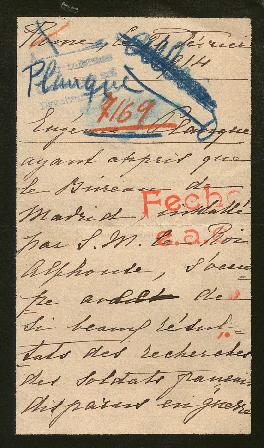 Planque
7169
Eugène Planque
ayant appris que
le Bureau de
Madrid installé
par S. M. le Roi
Alphonse, s'occu
pe avec de
si beaux résul-
tats des recherches
des soldats français
disparus en guerre
Fecha